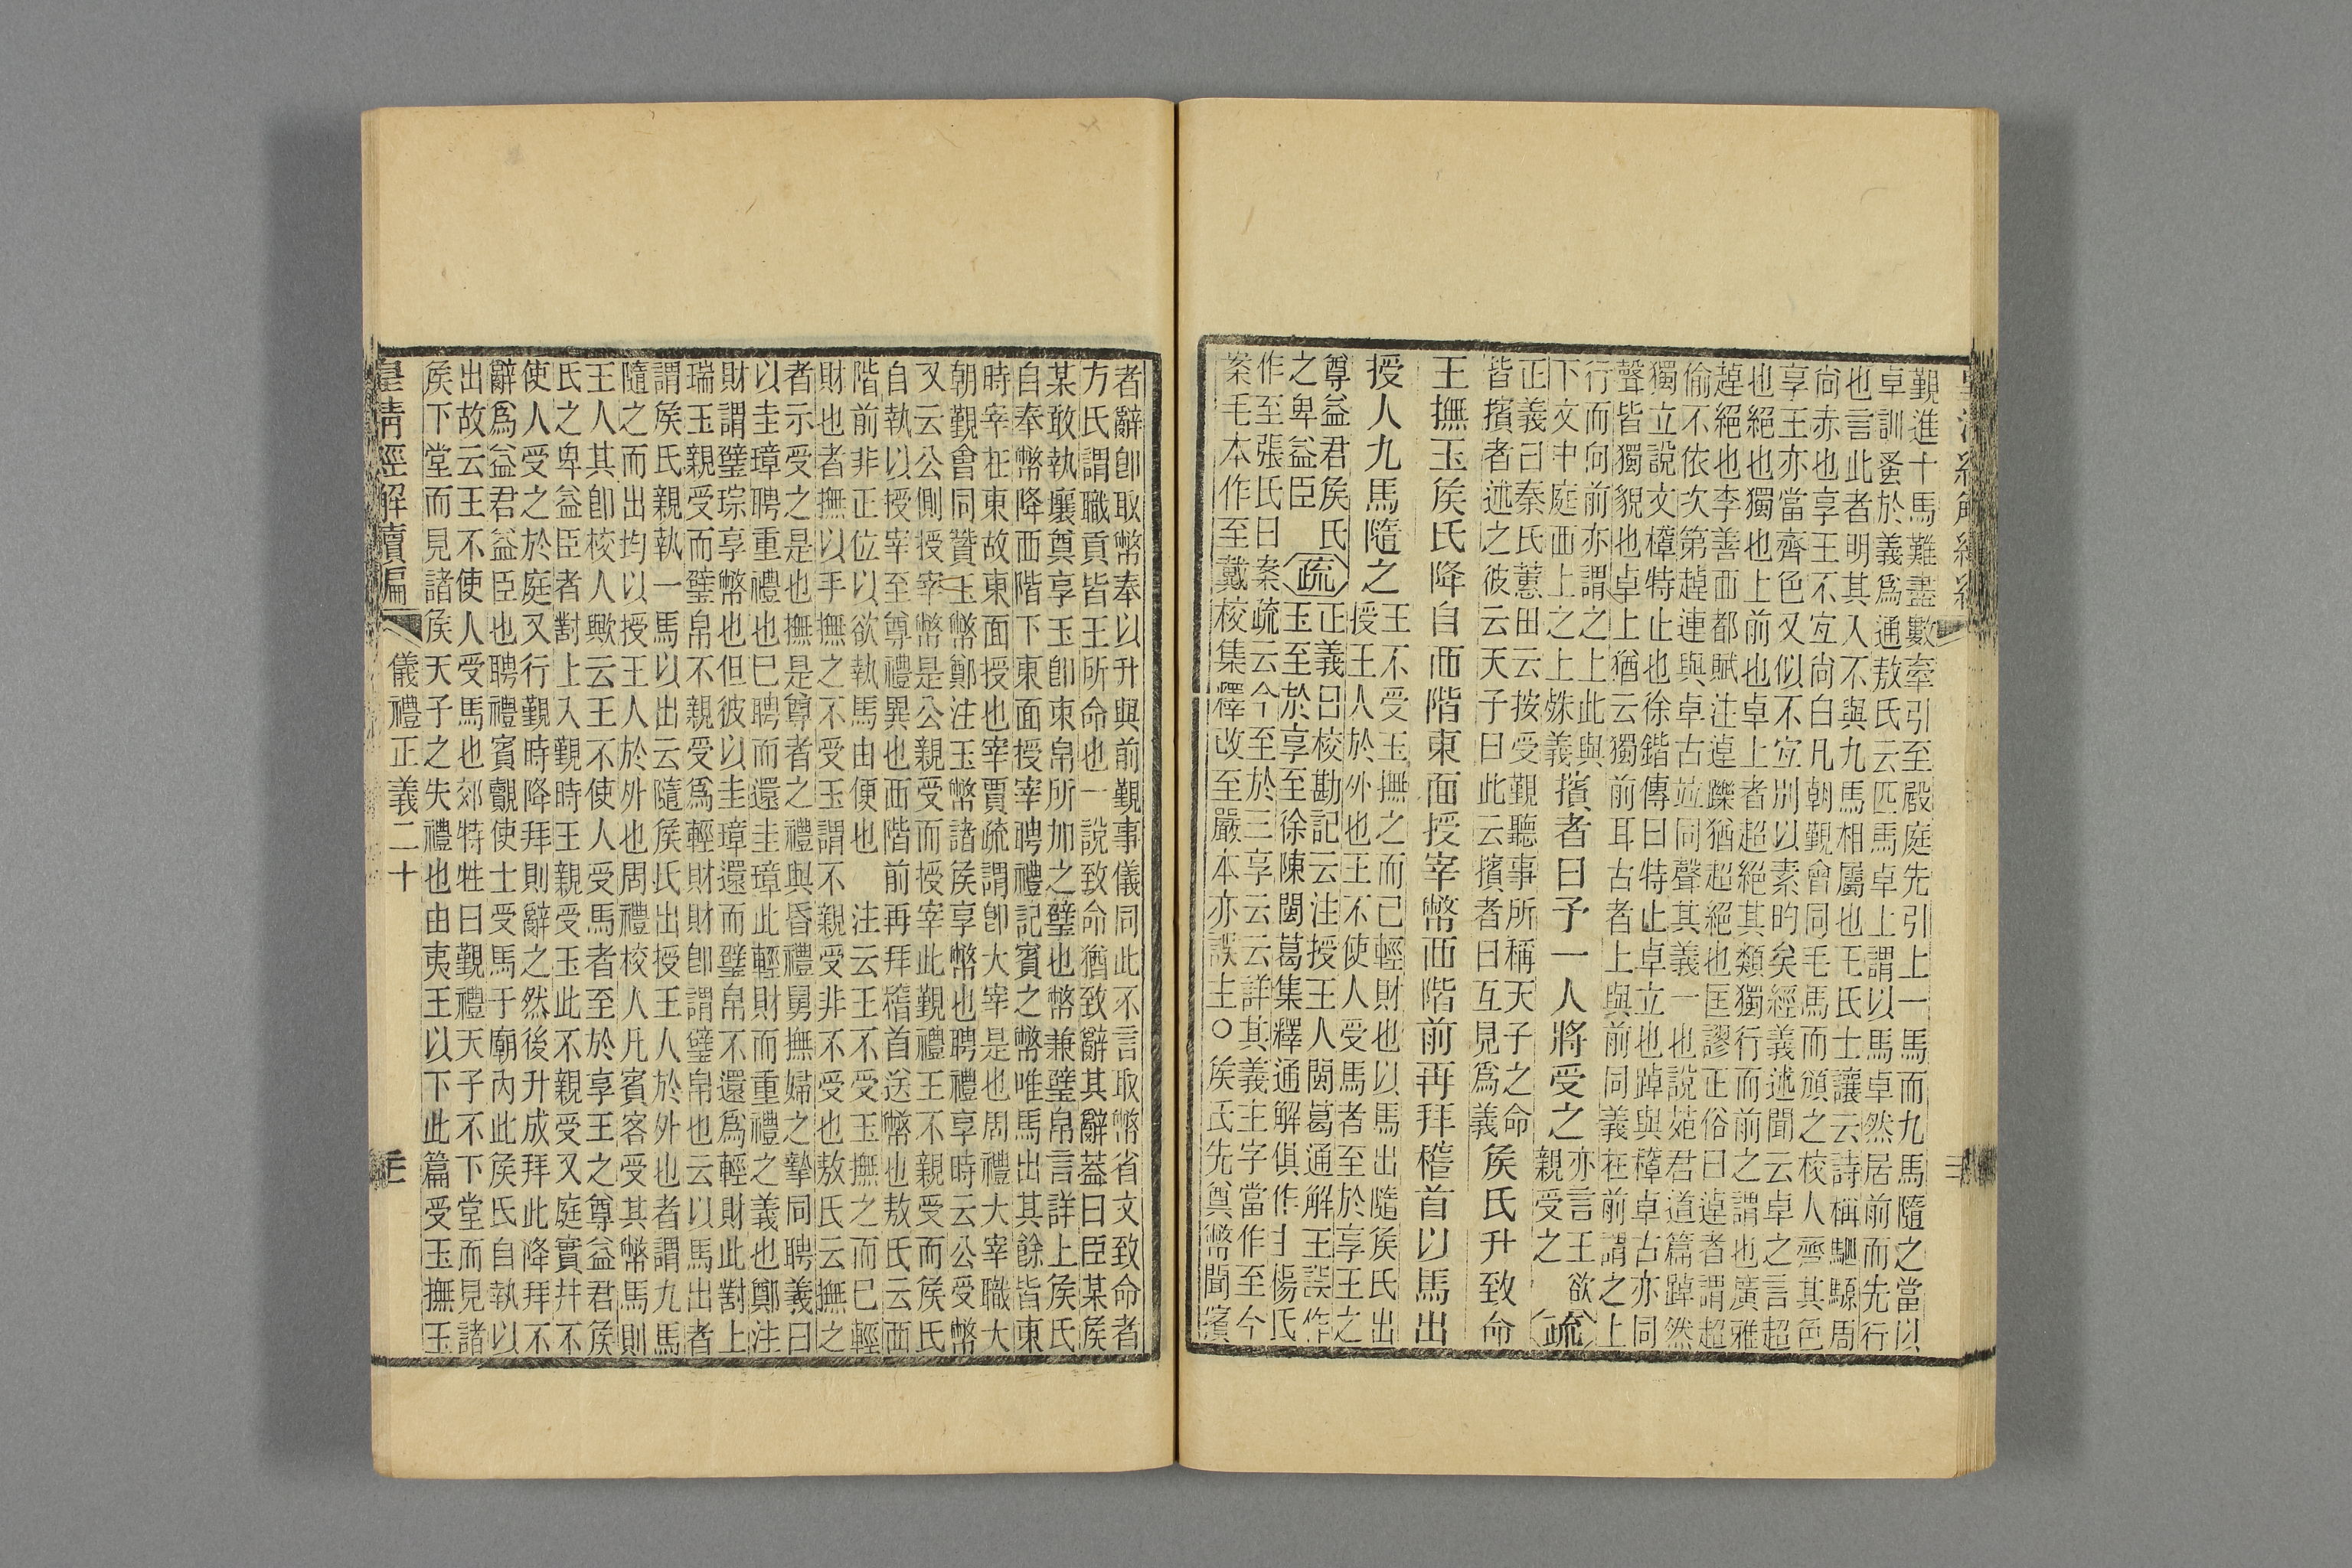 覲進十馬難盡數牽引至殿庭先引上一馬而九馬隨之當以
卓訓蚤於義爲通敖氏云匹馬卓上謂以一馬卓然居前而先行
也言此者明其入不與九馬相屬也王氏士讓云詩稱駟騵周
尙赤也享王不宐尙白凡朝覲會同毛馬而頒之校人齊其色
享王亦當齊色又似不宐別以素旳矣經義述聞云卓之言超
也絕也獨也上前也卓上者超絕其類獨行而前之謂也廣雅
趠絕也李善西都賦注逴躒猶超絕也匡謬正俗曰逴者謂超
偷不依次第趠連與卓古竝同聲其義一也說苑君道篇踔然
獨立說文㯙特止也徐鍇傳曰特止卓立也踔與㯙卓古亦同
聲皆獨貌也卓上猶云獨前耳古者上與前同義在前謂之上
行而向前亦謂之上此與
下文中庭西上之上殊義
擯者曰予一人將受之
亦言王欲
親受之
疏
正義曰秦氏蕙田云按受覲聽事所稱天子之命
皆擯者述之彼云天子曰此云擯者曰互見爲義
矦氏升致命
王撫玉矦氏降自西階東面授宰幣西階前再拜稽首以馬出
授人九馬隨之
王不受玉撫之而已輕財也以馬出隨矦氏出
授王人於外也王不使人受馬者至於享王之
尊益君矦氏
之卑益臣
疏
正義曰校勘記云注授王人閩葛通解王誤作
玉至於享至徐陳閩葛集釋通解俱作主楊氏
作至張氏曰案疏云今至於三享云云詳其義主字當作至今
案毛本作至戴校集釋改至嚴本亦誤主○矦氏先奠幣聞擯
者辭卽取幣奉以升與前覲事儀同此不言取幣省文致命者
方氏謂職貢皆王所命也一說致命猶致辭其辭葢曰臣某矦
某敢執壤奠享玉卽束帛所加之璧也幣兼璧帛言詳上矦氏
自奉幣降西階下東面授宰聘禮記賓之幣唯馬出其餘皆東
時宰在東故東面授也宰賈疏謂卽大宰是也周禮大宰職大
朝覲會同贊玉幣鄭注玉幣諸矦享幣也聘禮享時云公受幣
又云公側授宰幣是公親受而授宰此覲禮王不親受而矦氏
自執以授宰至尊禮異也西階前再拜稽首送幣也敖氏云西
階前非正位以欲執馬由便也　注云王不受玉撫之而已輕
財也者撫以手撫之不受玉謂不親受非不受也敖氏云撫之
者示受之是也撫是尊者之禮與昏禮舅撫婦之摯同聘義曰
以圭璋聘重禮也已聘而還圭璋此輕財而重禮之義也鄭注
財謂璧琮享幣也但彼以圭璋還而璧帛不還爲輕財此對上
瑞玉親受而璧帛不親受爲輕財財卽謂璧帛也云以馬出者
謂矦氏親執一馬以出云隨矦氏出授王人於外也者謂九馬
隨之而出均以授王人於外也周禮校人凡賓客受其幣馬則
王人其卽校人歟云王不使人受馬者至於享王之尊益君矦
氏之卑益臣者對上入覲時王親受玉此不親受又庭實幷不
使人受之於庭又行覲時降拜則辭之然後升成拜此降拜不
辭爲益君益臣也聘禮賓覿使士受馬于廟內此矦氏自執以
出故云王不使人受馬也郊特牲曰覲禮天子不下堂而見諸
矦下堂而見諸矦天子之失禮也由夷王以下此篇受玉撫玉
皇淸經解續編
儀禮正義二十